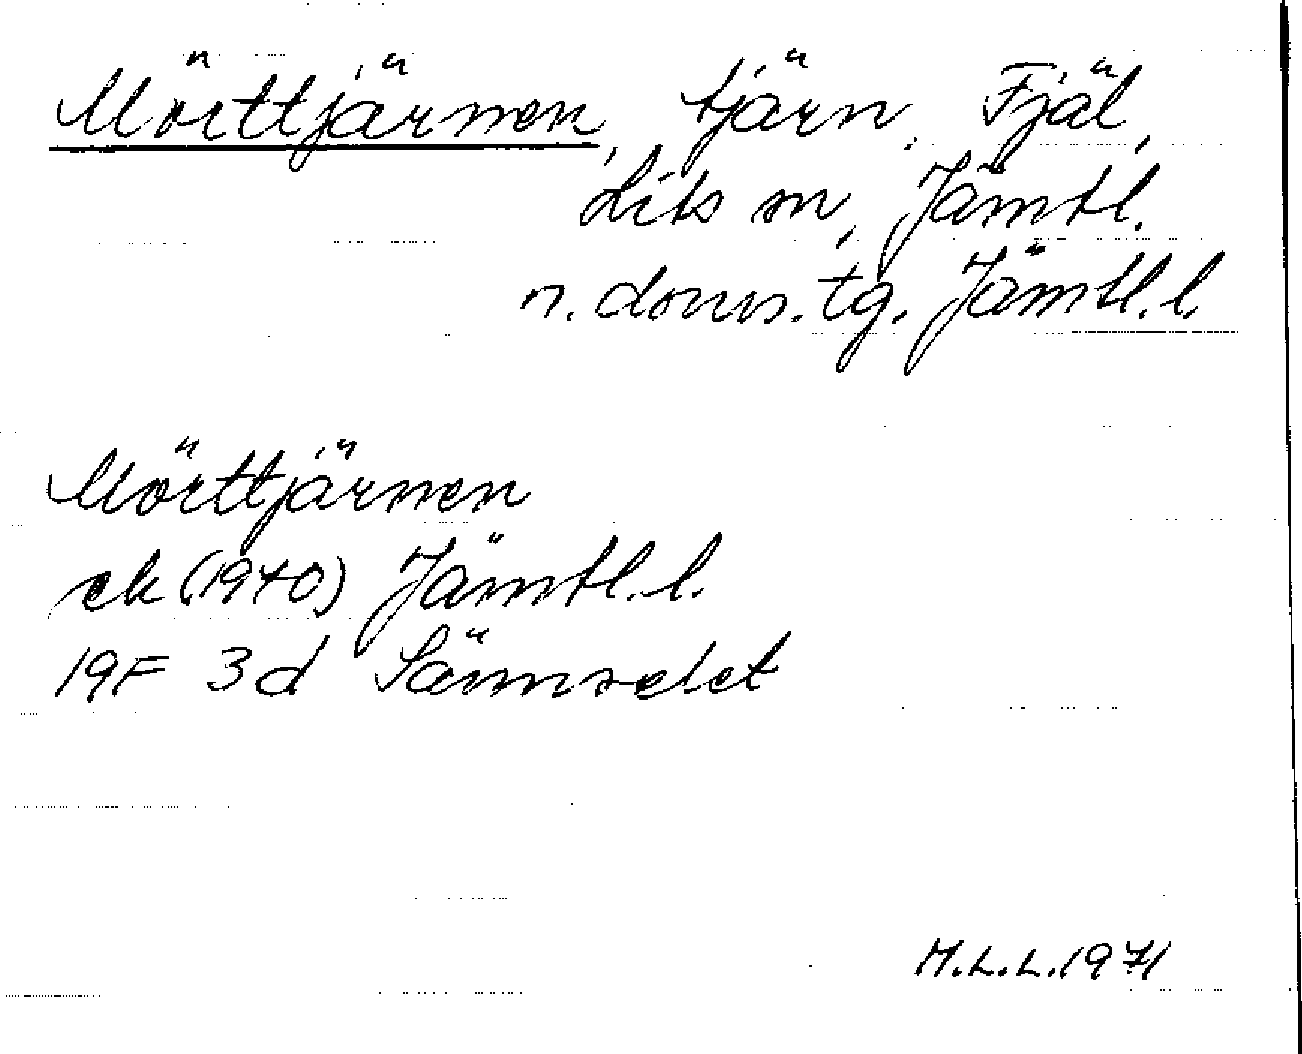 Mörttjärnen, tjärn, Fjäl,
Lits sn, Jämtl.
n. doms. tg. Jämtl. l.
Mörttjärnen
ek (1970) Jämtl. l.
19F 3d Sännselet
M.L.L. 1971